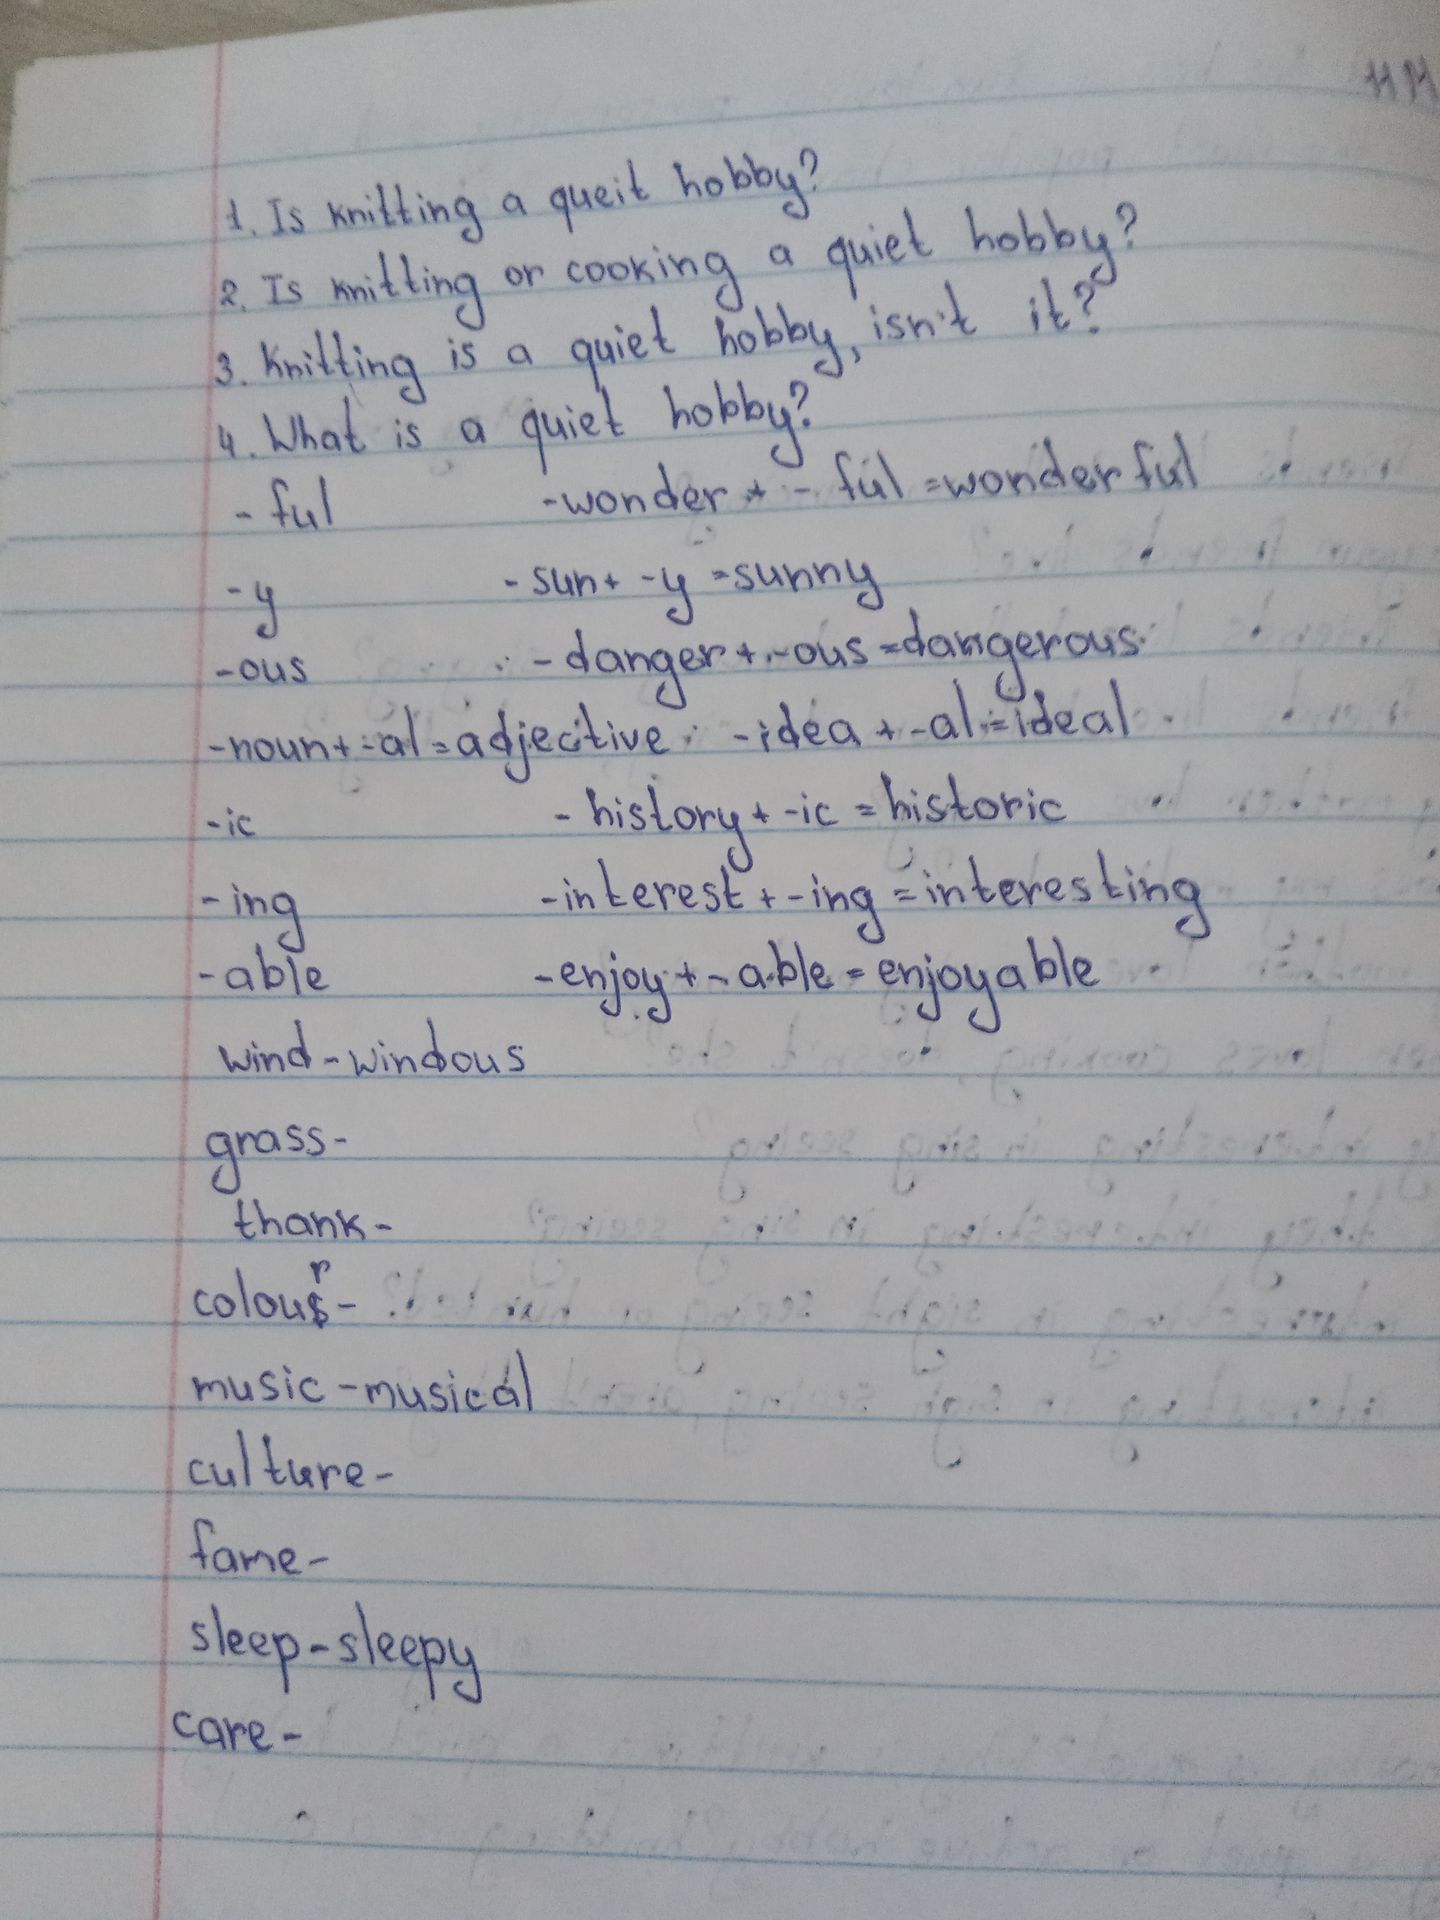 1. Is knitting a queit hobby?
2. Is knitting or cooking a quiet hobby?
3. Knitting is a quiet hobby, isn't it?
4. What is a quiet hobby?
- ful -wonder + - ful = wonderful
- y - sun + -y = sunny
- ous - danger + -ous = dangerous
-noun + -al = adjective -idea + -al = ideal
-ic - history + -ic = historic
- ing -interest + -ing = interesting
- able -enjoy + - able = enjoyable
wind - windous
grass-
thank -
colour -
music - musical
culture -
fame -
sleep - sleepy
care -